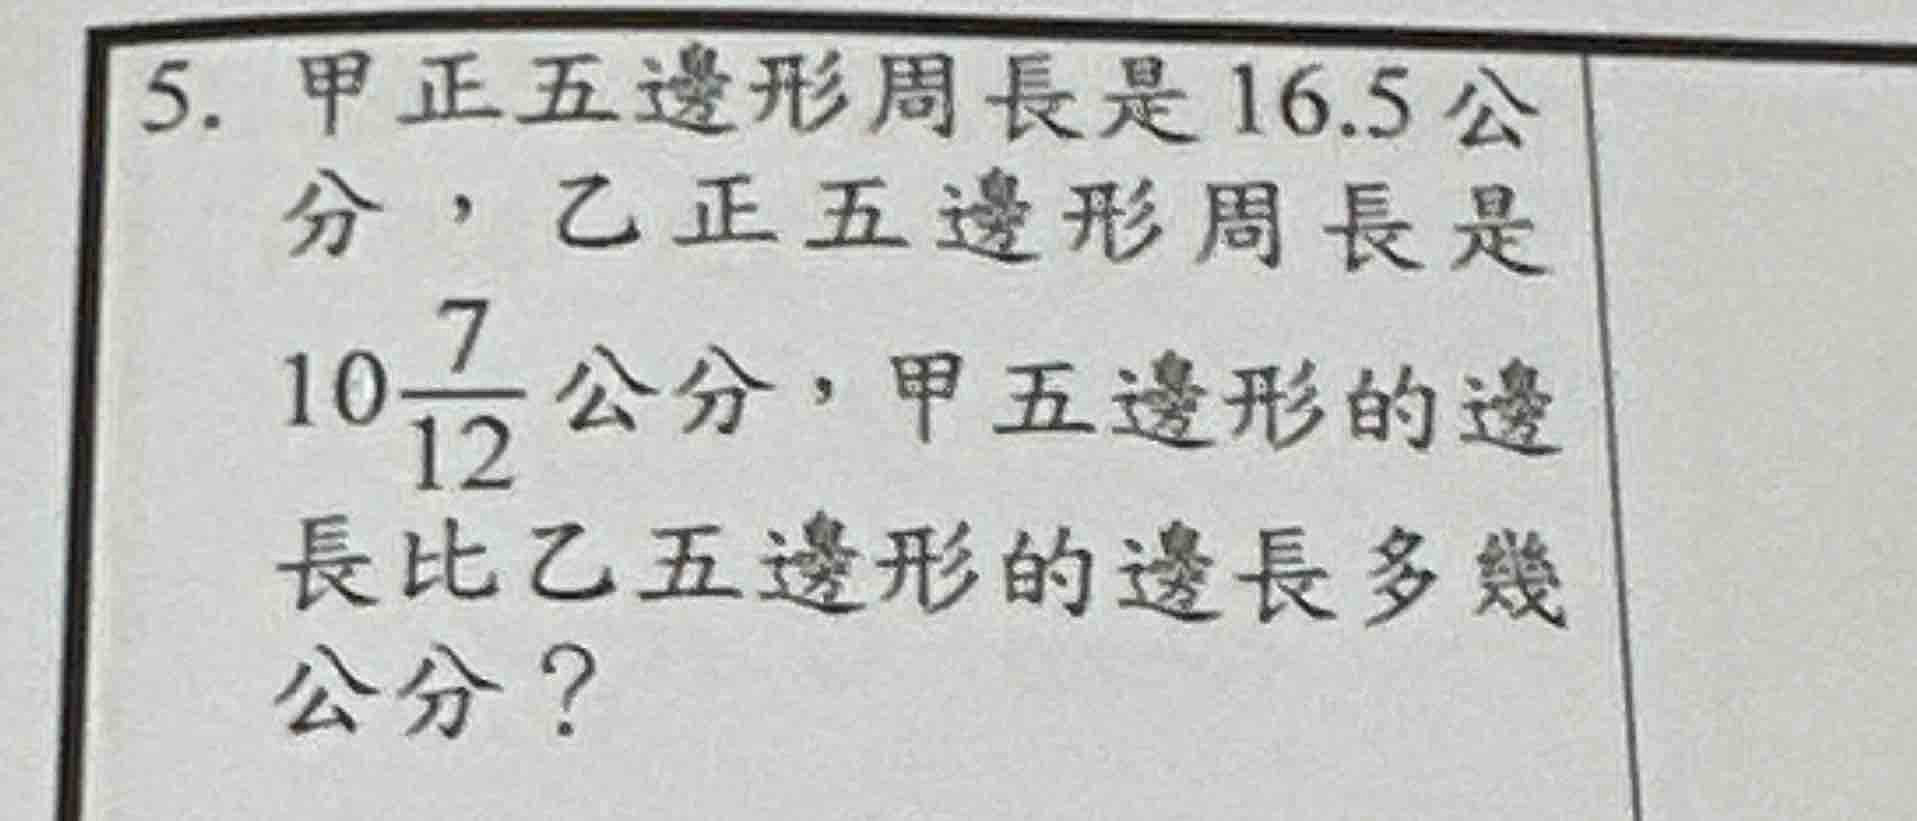 5. 甲正五邊形周長是16.5公
分，乙正五邊形周長是
10 7/12 公分，甲五邊形的邊
長比乙五邊形的邊長多幾
公分？